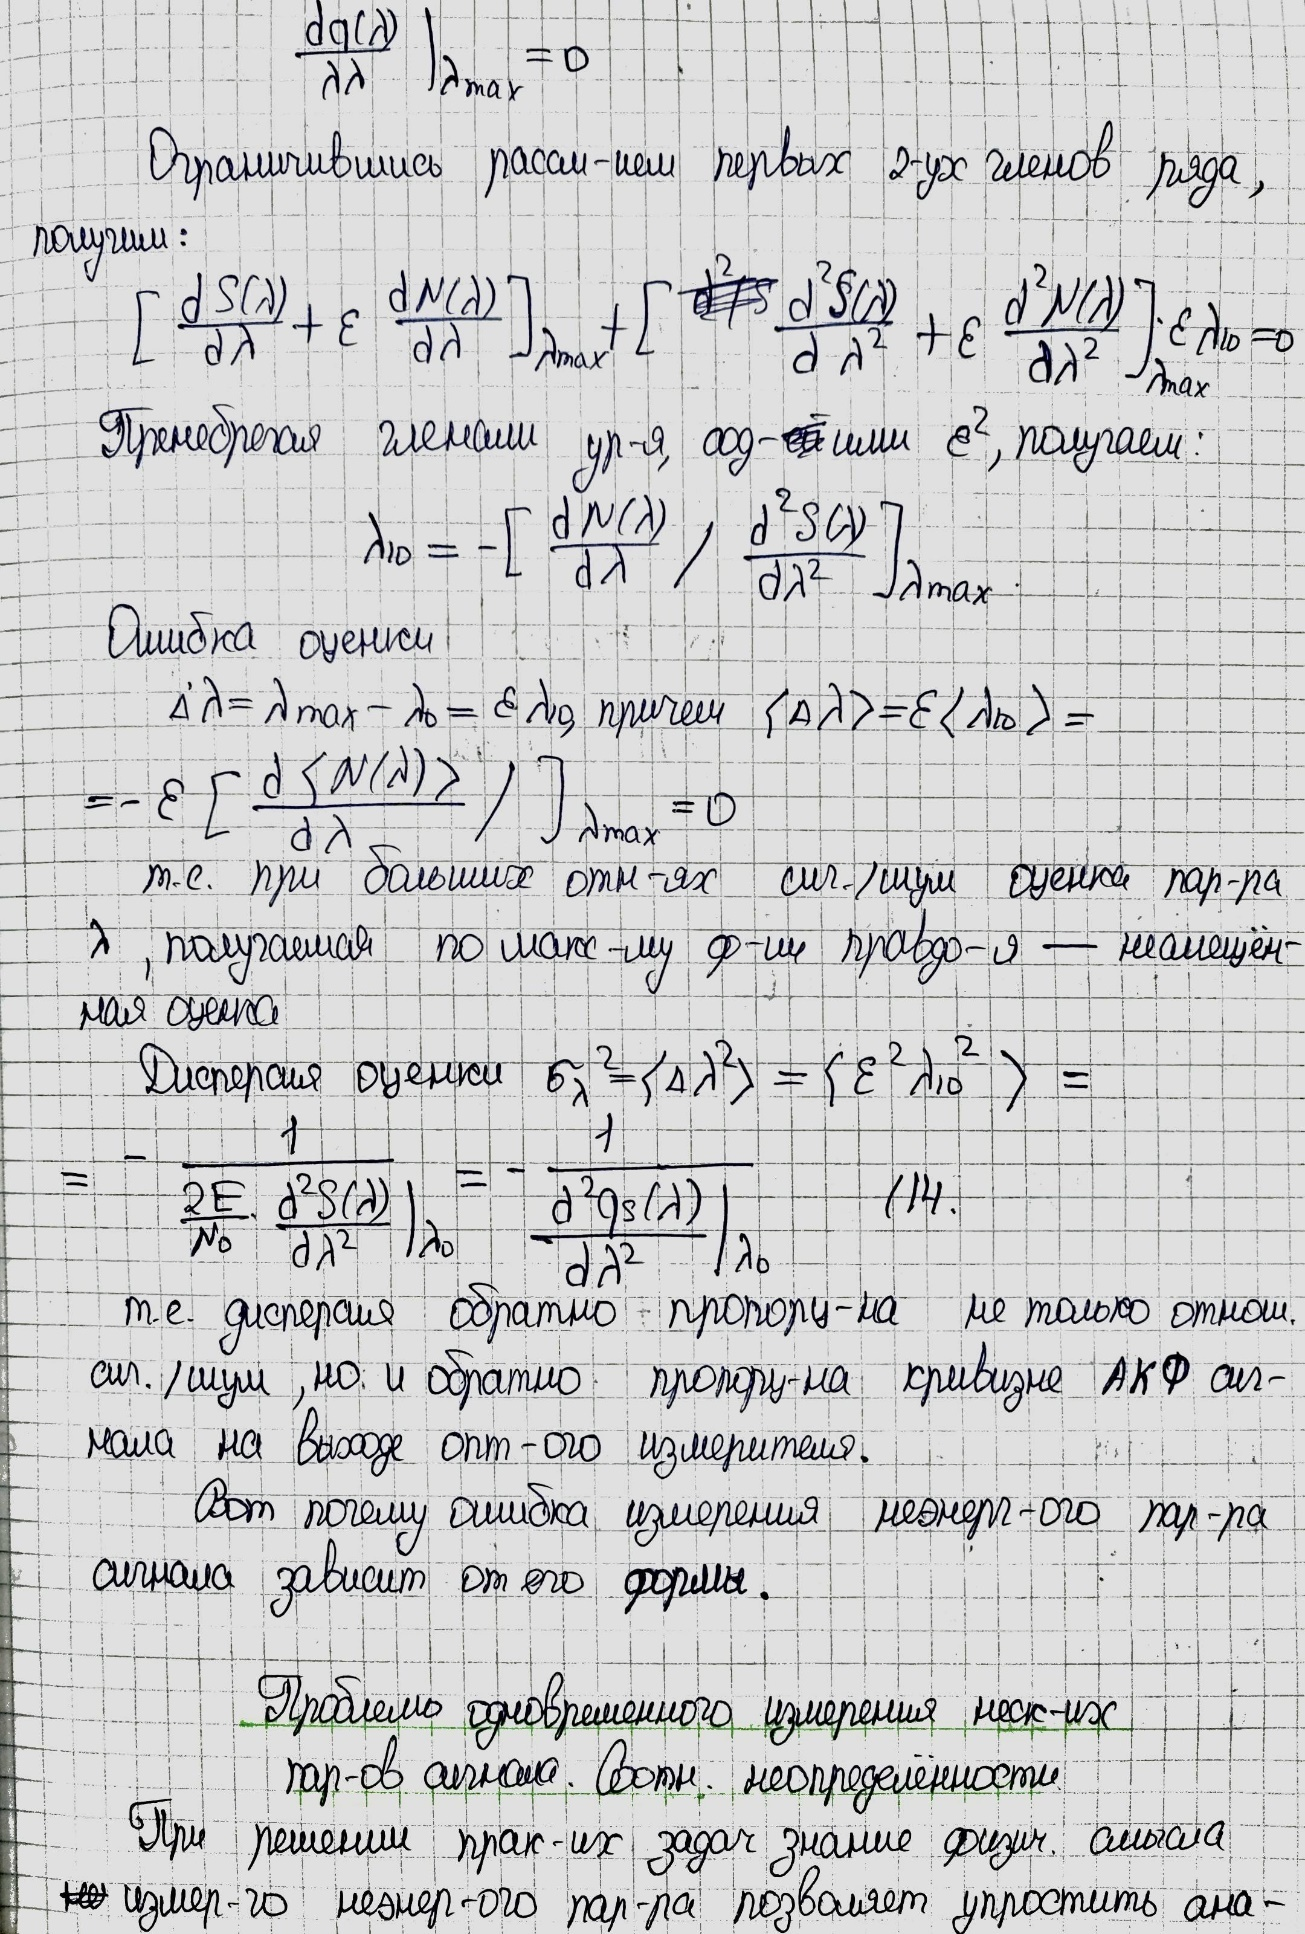 dq(λ)/λλ |λmax = 0
Ограничившись рассм-ием первых 2-ух членов ряда,
получим:
[dS(λ)/dλ + ε dN(λ)/dλ]λmax + [d²S(λ)/dλ² + ε d²N(λ)/dλ²]λmax · ελ10 = 0
Пренебрегая членами ур-я, сод-ими ε², получаем:
λ10 = -[dN(λ)/dλ / d²S(λ)/dλ²]λmax.
Ошибка оценки
Δλ = λmax - λ0 = ελ10, причем ⟨Δλ⟩ = ε⟨λ10⟩ =
= - ε [d⟨N(λ)⟩/dλ / ]λmax = 0
т.е. при больших отн-ях сиг./шум оценка пар-ра
λ, получаемая по макс-му ф-ии правдо-я — несмещён-
ная оценка
Дисперсия оценки σλ² = ⟨Δλ²⟩ = ⟨ε²λ10²⟩ =
= - 1/(2E/N0 · d²S(λ)/dλ² |λ0) = - 1/(d²qs(λ)/dλ² |λ0) (14.
т.е. дисперсия обратно пропорц-на не только отнош.
сиг./шум, но и обратно пропорц-на кривизне АКФ сиг-
нала на выходе опт-ого измерителя.
Вот почему ошибка измерения неэнерг-ого пар-ра
сигнала зависит от его формы.
Проблема одновременного измерения неск-их
пар-ов сигнала. Соотн. неопределённости
При решении прак-их задач знание физич. смысла
измер-го неэнер-ого пар-ра позволяет упростить ана-